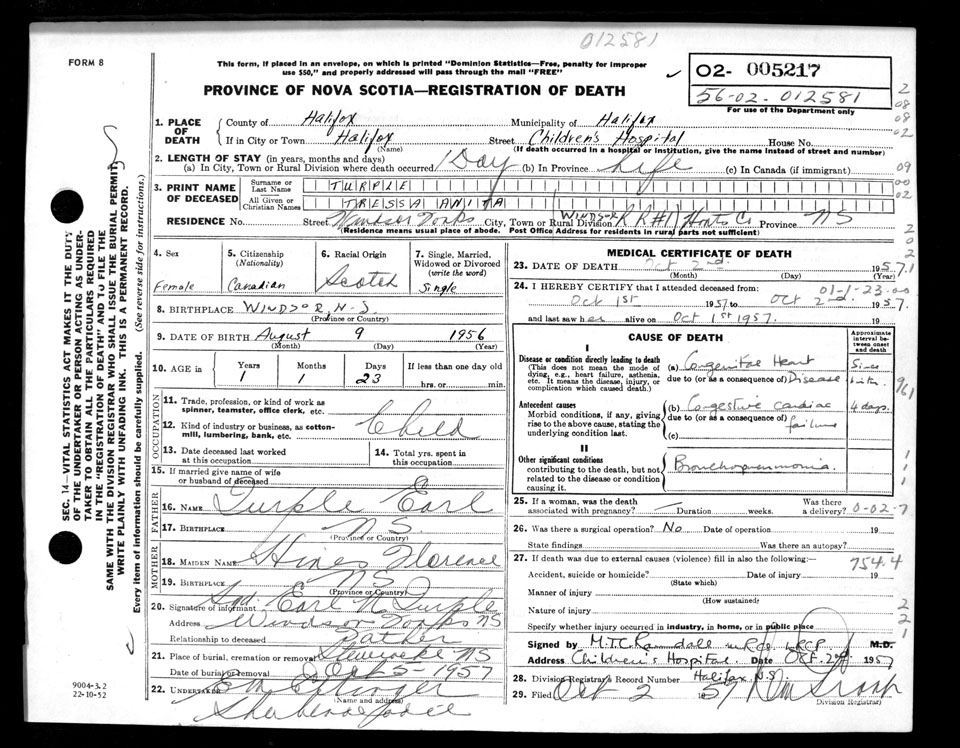 012581
FORM 8
This form, if placed in an envelope, on which is printed "Dominion Statistics—Free, penalty for improper
use $50," and properly addressed will pass through the mail "FREE"
PROVINCE OF NOVA SCOTIA—REGISTRATION OF DEATH
02- 005217
56-02-012581
For use of the Department only
1. PLACE OF DEATH
County of Halifax Municipality of Halifax
If in City or Town Halifax Street Children's Hospital House No.
(Name) (If death occurred in a hospital or institution, give the name instead of street and number)
2. LENGTH OF STAY (in years, months and days)
(a) In City, Town or Rural Division where death occurred 1 Day (b) In Province Life (c) In Canada (if immigrant)
3. PRINT NAME OF DECEASED
Surname or Last Name TURPLE
All Given or Christian Names TRESSA ANITA
RESIDENCE No. Street Windsor Forks City, Town or Rural Division WINDSOR RR#1 Hants Co Province NS
(Residence means usual place of abode. Post Office Address for residents in rural parts not sufficient)
4. Sex Female
5. Citizenship (Nationality) Canadian
6. Racial Origin Scotch
7. Single, Married, Widowed or Divorced (write the word) Single
8. BIRTHPLACE WINDSOR, N.S.
(Province or Country)
9. DATE OF BIRTH August 9 1956
(Month) (Day) (Year)
10. AGE IN Years 1 Months 1 Days 23 If less than one day old
hrs. or min.
OCCUPATION
11. Trade, profession, or kind of work as
spinner, teamster, office clerk, etc.
12. Kind of industry or business, as cotton-
mill, lumbering, bank, etc. Child
13. Date deceased last worked
at this occupation
14. Total yrs. spent in
this occupation
15. If married give name of wife
or husband of deceased
FATHER
16. NAME Turple Earl
17. BIRTHPLACE N.S.
(Province or Country)
MOTHER
18. MAIDEN NAME Hines Florence
19. BIRTHPLACE NS
(Province or Country)
20. Signature of informant Sgd. Earl N Turple
Address Windsor Forks NS
Relationship to deceased Father
21. Place of burial, cremation or removal NS
Date of burial or removal Oct 5 - 1957
22. UNDERTAKER
(Name and address)
9004-3.2
22-10-52
MEDICAL CERTIFICATE OF DEATH
23. DATE OF DEATH Oct 2nd 1957
(Month) (Day) (Year)
24. I HEREBY CERTIFY that I attended deceased from: 01-1-23.00
Oct 1st 1957 to Oct 2nd 1957.
and last saw her alive on Oct 1st 1957. 19
CAUSE OF DEATH
Approximate interval between onset and death
I
Disease or condition directly leading to death
(This does not mean the mode of dying, e.g., heart failure, asthenia, etc. It means the disease, injury, or complication which caused death.)
(a) Congenital Heart
due to (or as a consequence of) Disease
Since birth
Antecedent causes
Morbid conditions, if any, giving rise to the above cause, stating the underlying condition last.
(b) Congestive cardiac
due to (or as a consequence of) failure
4 days.
(c)
II
Other significant conditions
contributing to the death, but not related to the disease or condition causing it.
Bronchopneumonia.
25. If a woman, was the death Was there
associated with pregnancy? Duration weeks. a delivery? 0-02-7
26. Was there a surgical operation? No Date of operation 19
State findings Was there an autopsy?
27. If death was due to external causes (violence) fill in also the following:— 754.4
Accident, suicide or homicide? Date of injury 19
(State which)
Manner of injury
(How sustained)
Nature of injury
Specify whether injury occurred in industry, in home, or in public place
Signed by M.D.
Address Children's Hospital. Date Oct. 2nd 1957
28. Division Registrar's Record Number Halifax N.S.
29. Filed Oct 2 1957
Division Registrar
SEC. 14—VITAL STATISTICS ACT MAKES IT THE DUTY
OF THE UNDERTAKER OR PERSON ACTING AS UNDER-
TAKER TO OBTAIN ALL THE PARTICULARS REQUIRED
IN THE "REGISTRATION OF DEATH" AND TO FILE THE
SAME WITH THE DIVISION REGISTRAR WHO SHALL ISSUE THE BURIAL PERMIT.
WRITE PLAINLY WITH UNFADING INK. THIS IS A PERMANENT RECORD.
Every item of information should be carefully supplied. (See reverse side for instructions.)